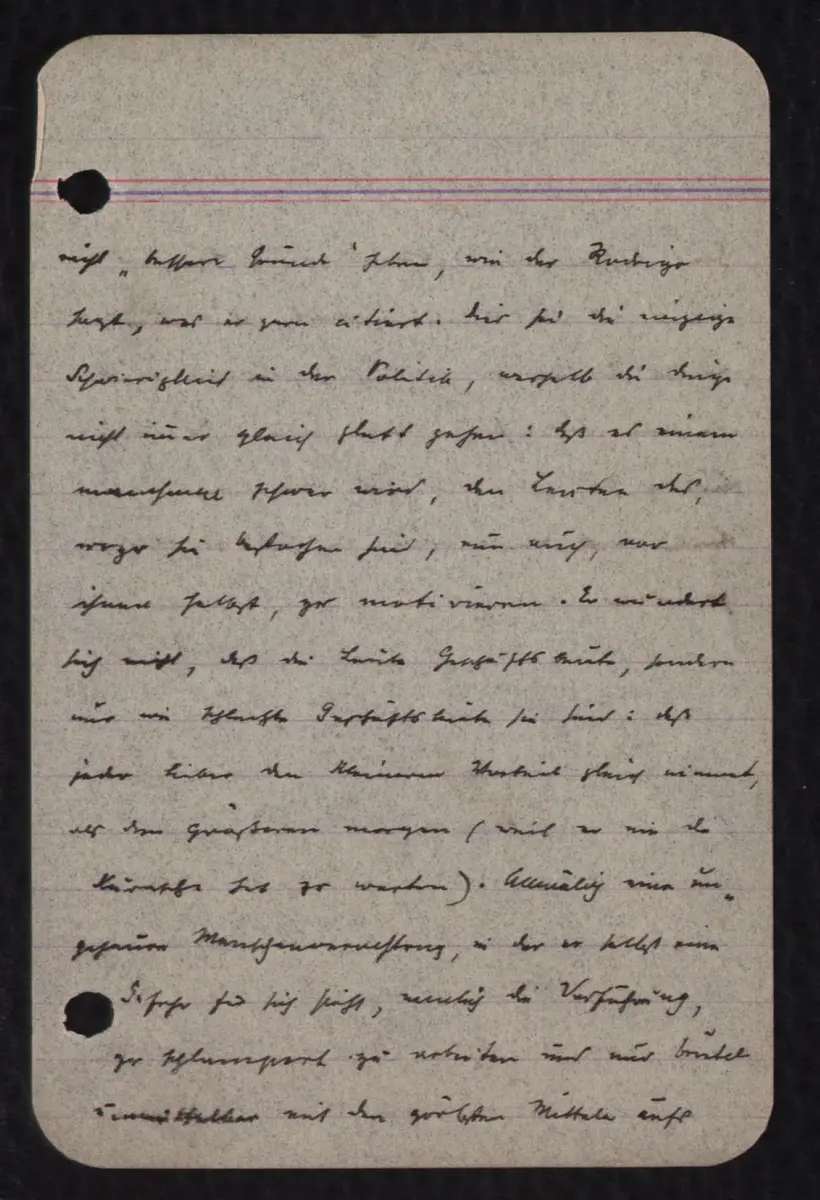 nicht „bessere Gründe" haben, wie der Rodrigo
sagt, was er gern citiert. Dies sei die einzige
Schwierigkeit in der Politik, weshalb die Dinge
nicht immer gleich glatt gehen: daß es einem
manchmal schwer wird, den Leuten das,
wozu sie bestochen sind, nun auch, vor
ihnen selbst, zu motivieren. Er wundert
sich nicht, daß die Leute Geschäftsleute, sondern
nur wie schlechte Geschäftsleute sie sind: daß
jeder lieber den kleineren Vorteil gleich nimmt,
als den größeren morgen (weil er nie die
Kurasche hat zu warten). Allmälig eine un-
geheure Menschenverachtung, in der er selbst eine
Gefahr für sich sieht, nemlich die Verführung,
zu schlampert zu arbeiten und nur brutal
unmittelbar mit den gröbsten Mitteln aufs